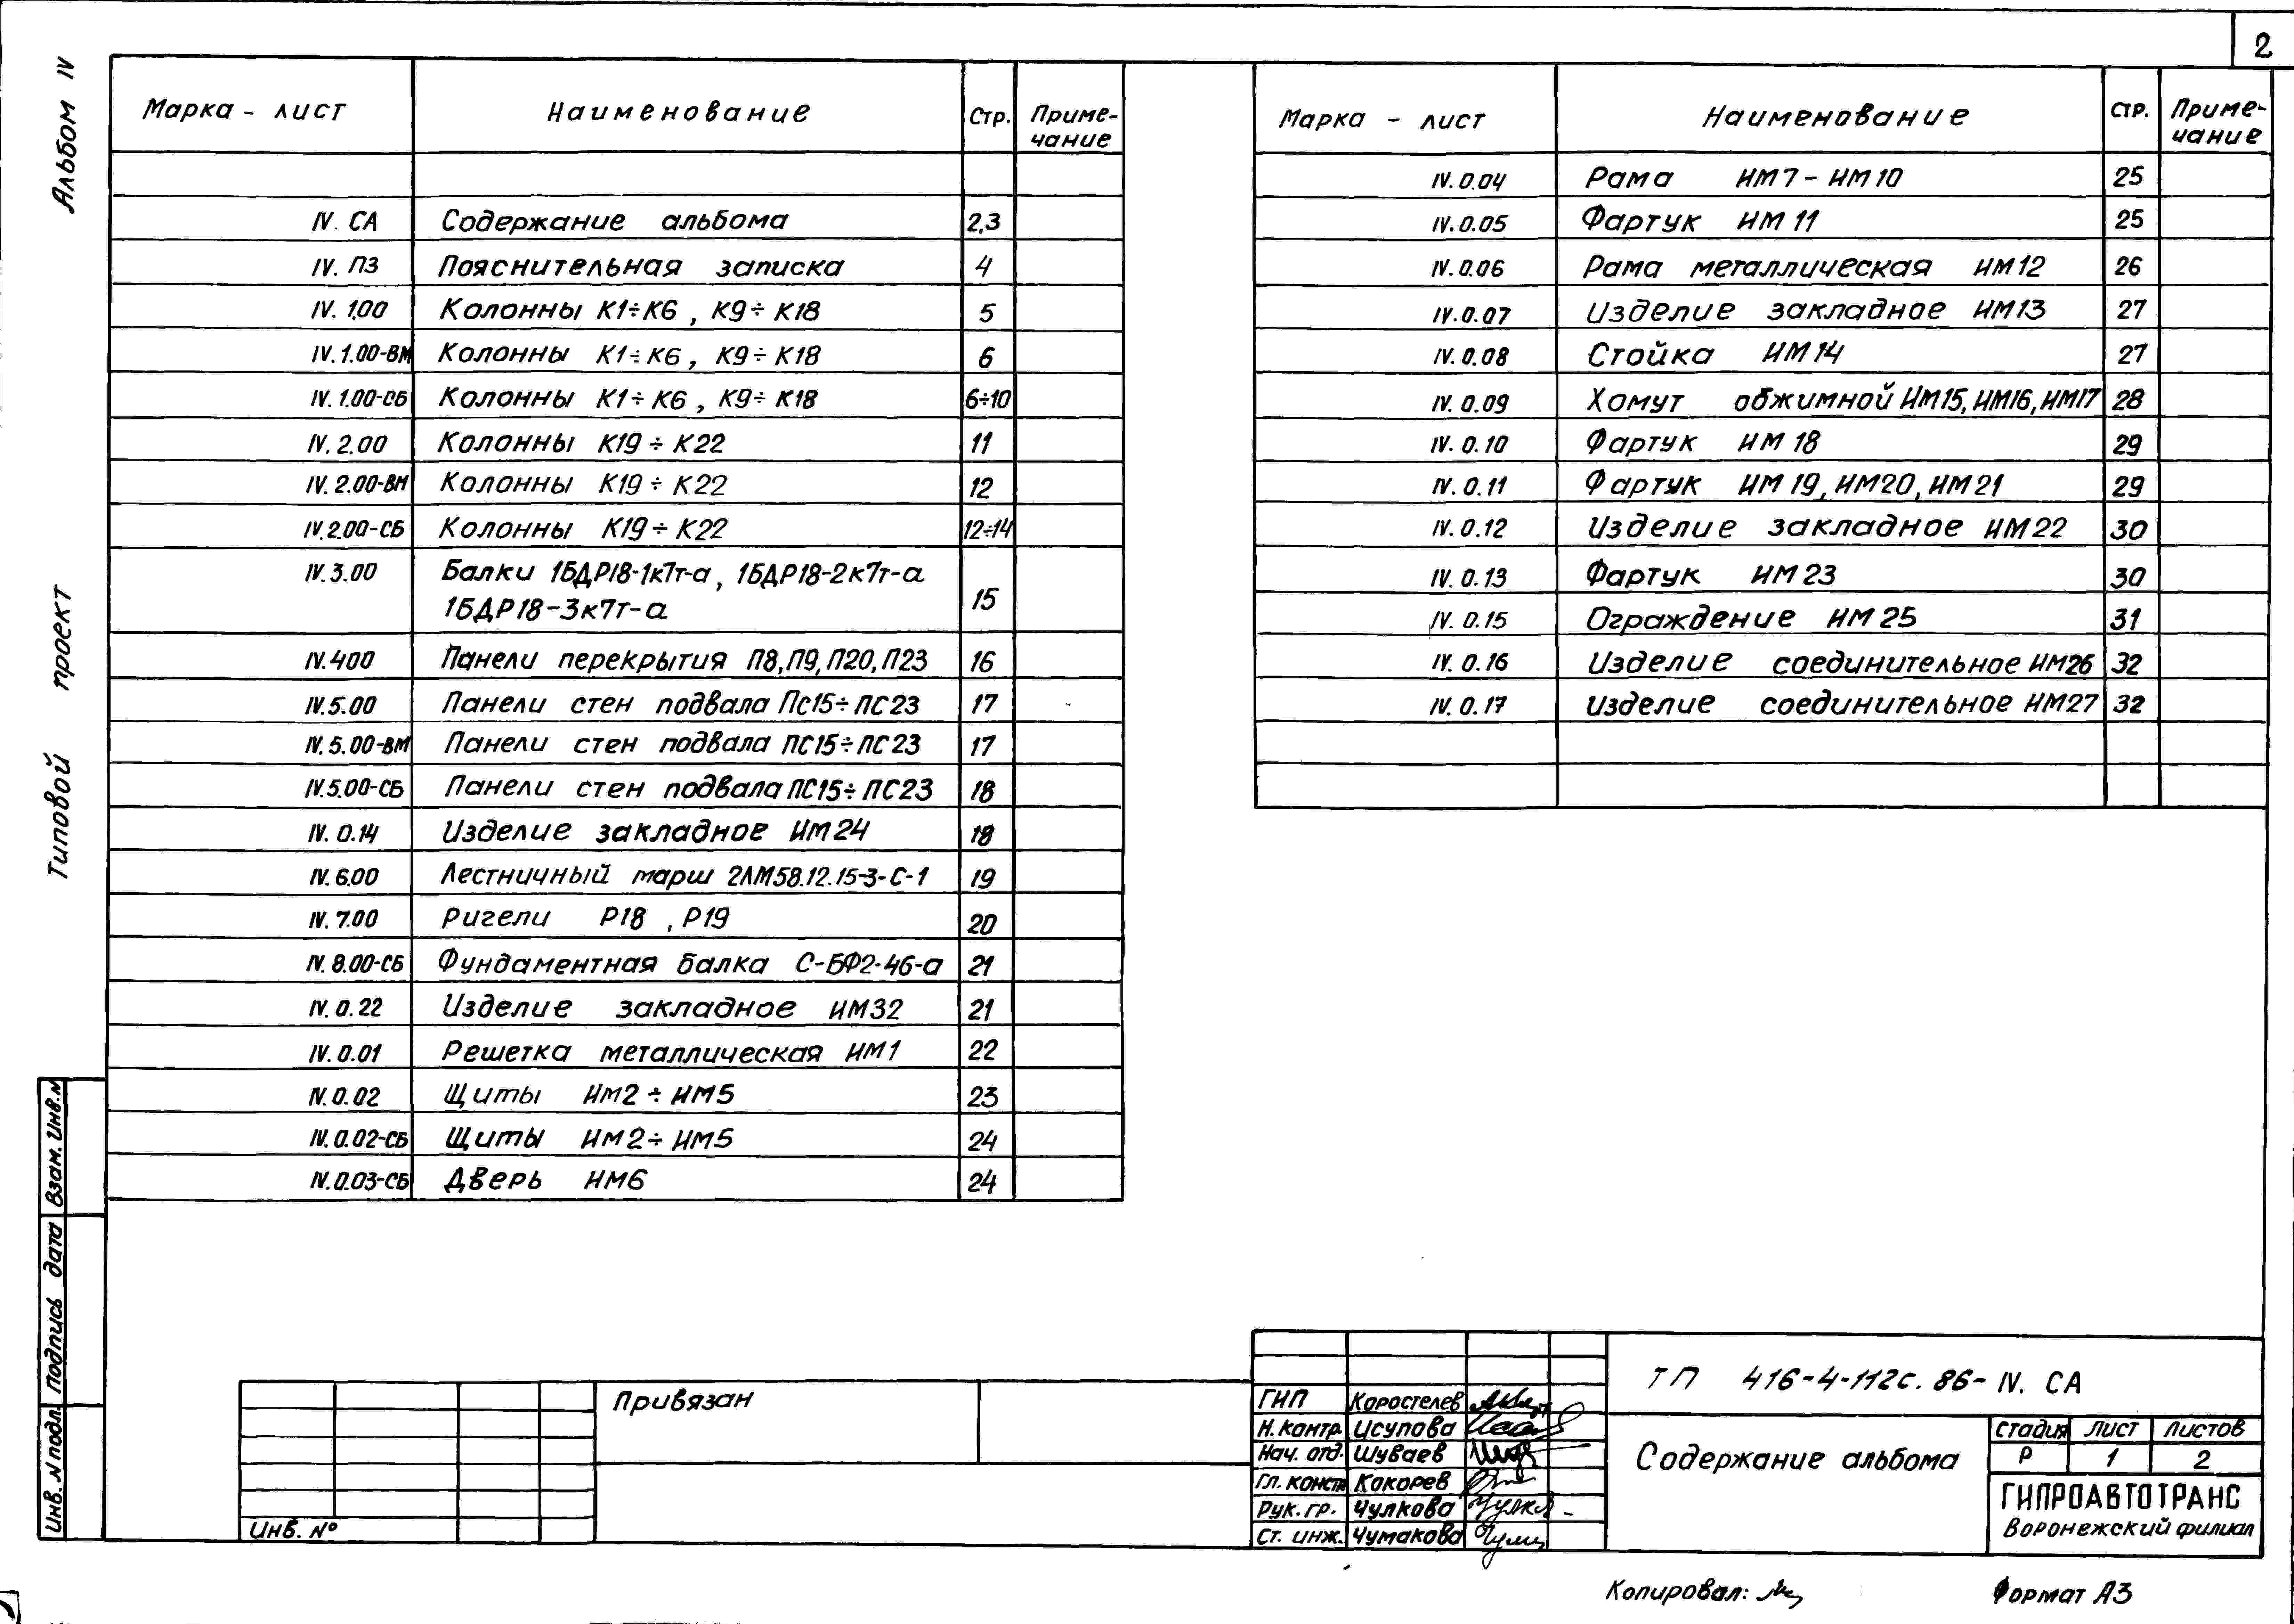 2
Альбом IV
Типовой проект
Марка - лист Наименование Стр. Приме-
чание
IV. СА Содержание альбома 2,3
IV. ПЗ Пояснительная записка 4
IV. 1.00 Колонны К1÷К6, К9÷К18 5
IV. 1.00-ВМ Колонны К1÷К6, К9÷К18 6
IV. 1.00-СБ Колонны К1÷К6, К9÷К18 6÷10
IV. 2.00 Колонны К19÷К22 11
IV. 2.00-ВМ Колонны К19÷К22 12
IV. 2.00-СБ Колонны К19÷К22 12÷14
IV. 3.00 Балки 1БДР18-1к7т-а, 1БДР18-2к7т-а
1БДР18-3к7т-а 15
IV. 400 Панели перекрытия П8, П9, П20, П23 16
IV. 5.00 Панели стен подвала Пс15÷ПС23 17
IV. 5.00-ВМ Панели стен подвала ПС15÷ПС23 17
IV. 5.00-СБ Панели стен подвала ПС15÷ПС23 18
IV. 0.14 Изделие закладное ИМ24 18
IV. 6.00 Лестничный марш 2ЛМ58.12.15-3-С-1 19
IV. 7.00 Ригели Р18, Р19 20
IV. 8.00-СБ Фундаментная балка С-БФ2-46-а 21
IV. 0.22 Изделие закладное ИМ32 21
IV. 0.01 Решетка металлическая ИМ1 22
IV. 0.02 Щиты ИМ2÷ИМ5 23
IV. 0.02-СБ Щиты ИМ2÷ИМ5 24
IV. 0.03-СБ Дверь ИМ6 24
Марка - лист Наименование СТР. Приме-
чание
IV. 0.04 Рама ИМ7-ИМ10 25
IV. 0.05 Фартук ИМ11 25
IV. 0.06 Рама металлическая ИМ12 26
IV. 0.07 Изделие закладное ИМ13 27
IV. 0.08 Стойка ИМ14 27
IV. 0.09 Хомут обжимной ИМ15, ИМ16, ИМ17 28
IV. 0.10 Фартук ИМ18 29
IV. 0.11 Фартук ИМ19, ИМ20, ИМ21 29
IV. 0.12 Изделие закладное ИМ22 30
IV. 0.13 Фартук ИМ23 30
IV. 0.15 Ограждение ИМ25 31
IV. 0.16 Изделие соединительное ИМ26 32
IV. 0.17 Изделие соединительное ИМ27 32
Взам. инв. N
Подпись дата
Инв. N подл.
Привязан
Инв. №
ГИП Коростелев
Н. контр. Исупова
Нач. отд. Шуваев
Гл. констр. Кокорев
Рук. гр. Чулкова
Ст. инж. Чумакова
ТП 416-4-112с. 86- IV. СА
Содержание альбома
Стадия Лист Листов
Р 1 2
ГИПРОАВТОТРАНС
Воронежский филиал
Копировал:
Формат А3